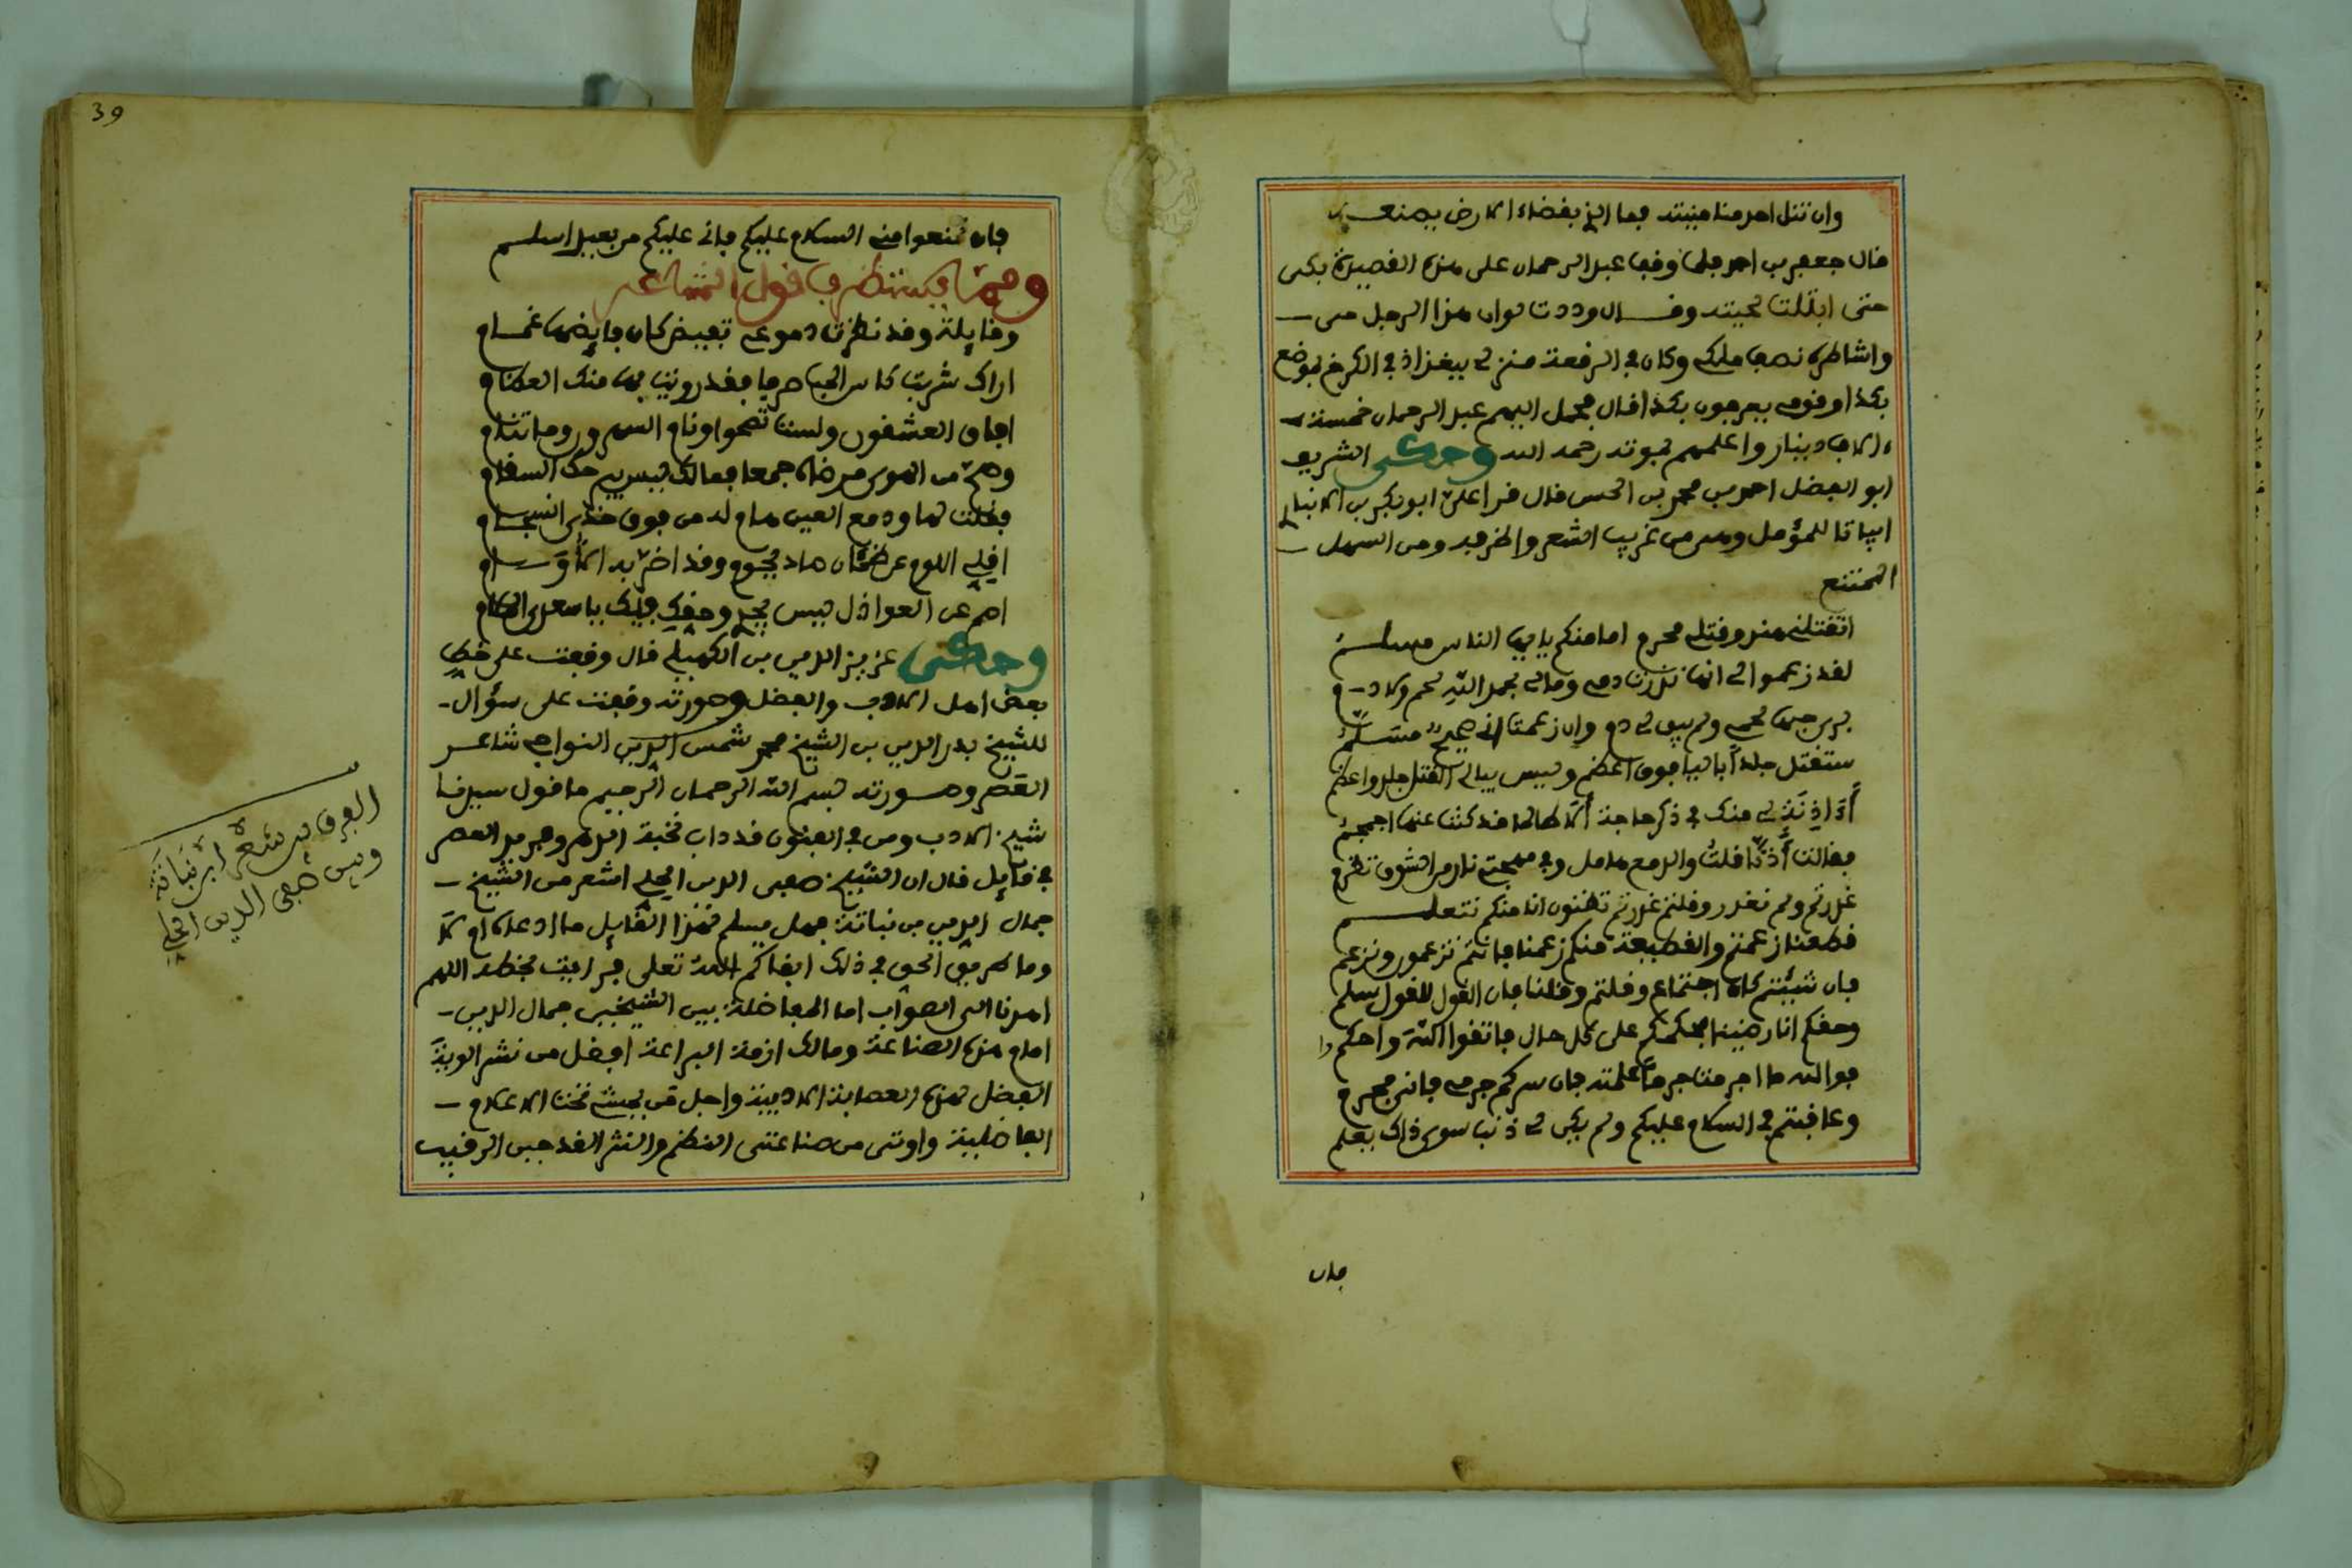 وان تنل احدمنا منيته فما الذي بفضاء الارض يصنعـه
قال جعفر بن احمد فلما وقف عبد الرحمان على هذه القصيدة بكى
حتى ابتلت لحيته وقــال وددت لو ان هذا الرجل حى
واشاطره نصف ملكى وكان فى الرقعة منزلى ببغداذ فى الكرخ بموضع
بكذا وقومى يعرفون بكذا فال فحمل اليهم عبد الرحمان خمسة
ءالاف دينار واعلمهم بموته رحمه الله وحكى الشريف
ابو الفضل احمد بن محمد بن الحسن قال قرا على ابو بكر بن الانباري
ابياتا للمؤمل وهى من غريب الشعر واظرفه ومن السهل
الممتنع
اتقتلنى هند وقتلى محرم اما منكم يا ايها الناس مسلـم
لقد زعموا لى انها نذرت دمى ومالى بحمد الله لحم ولا دم
برى حبها لحمى ولم يبق لى دم وان زعمت انى صحيح مسلّم
ستقتل جلدا باليا فوق اعظم وليس يبالى القتل جلد واعظم
أءَاذنة لى منك فى ذكر حاجة ألا طالما قد كنت عنها اجمجم
فقالت أذنّا قلت والدمع هامل وفى مهجتى نار من الشوق تضرم
غدرتم ولم نغدر وقلتم غدرتم تظنون انا منكم نتعلــم
قطعنا زعمتم والقطيعة منكم زعمنا فانتم تزعمون ونزعم
فان شئتم كان اجتماع وقلتم وقلنا فان القول للقول سلم
وحقكم انا رضينا بحكمكم على كل حال فاتقوا الله واحكموا
فوالله ما اجرمت جرما علمته فان سركم جرمى فانى مجرم
وعاقبتم فى السلام عليكم ولم يكن لى ذنب سوى ذاك يعلم
فان
39
فان تمنعوا منى السلام عليكم فانى عليكم من بعيد اسلـم
وممّا يستظرف قول الشاعر
وقايلة وقد نظرت دموعى تفيض كان فايضها غمــام
اراك شربت كاس الحب صرفا فقد رويت بها منك العظام
افاق العشقون ولست تصحوا ونام السهرون وما تنام
وهمّ من الهوى مرضاه جمعا فمالك ليس يبرحك السقام
فقلت لها ودمع العين هام له من فوق خدى انسجام
اقلى اللوم عن ظمئان صاد يحوم وقد اضرّ به الأوام
اصم عن العواذل ليس يجدى وحقك فيك يا سعدى الملام
وحكى عزيز الدين بن الكميلى قال وقفت على خط
بعض اهل الادب والفضل وصورته وقفت على سؤال
للشيخ بدر الدين بن الشيخ محمد شمس الدين النواجى شاعر
العصر وصـورته بسم الله الرحمان الرحيم ما قول سيدنا
شيخ الادب ومن فى الفنون قد داب نخبة الدهر وفريد العصر
فى قايل قال ان الشيخ صفى الدين الحلى اشعر من الشيخ
جمال الدين بن نباتة فهل يسلم لهذا القايل ما ادعاه ام لا
وما طريق الحق فى ذلك ابقاكم الله تعلى فى اجبت بخطه اللهم
اهدنا الى الصواب اما المفاضلة بين الشيخين جمال الدين
امام هذه الصناعة ومالك ازمة البراعة افضل من نشر الوية
الفضل لهذه العصابة الادبية واجل من يمشى تحت الاعلام
الفاضلية واوتى من صناعتى النظم والنثر القدحين الرقيب
الفرق بين شعر ابن نباتة
وبين صفى الدين الحلى